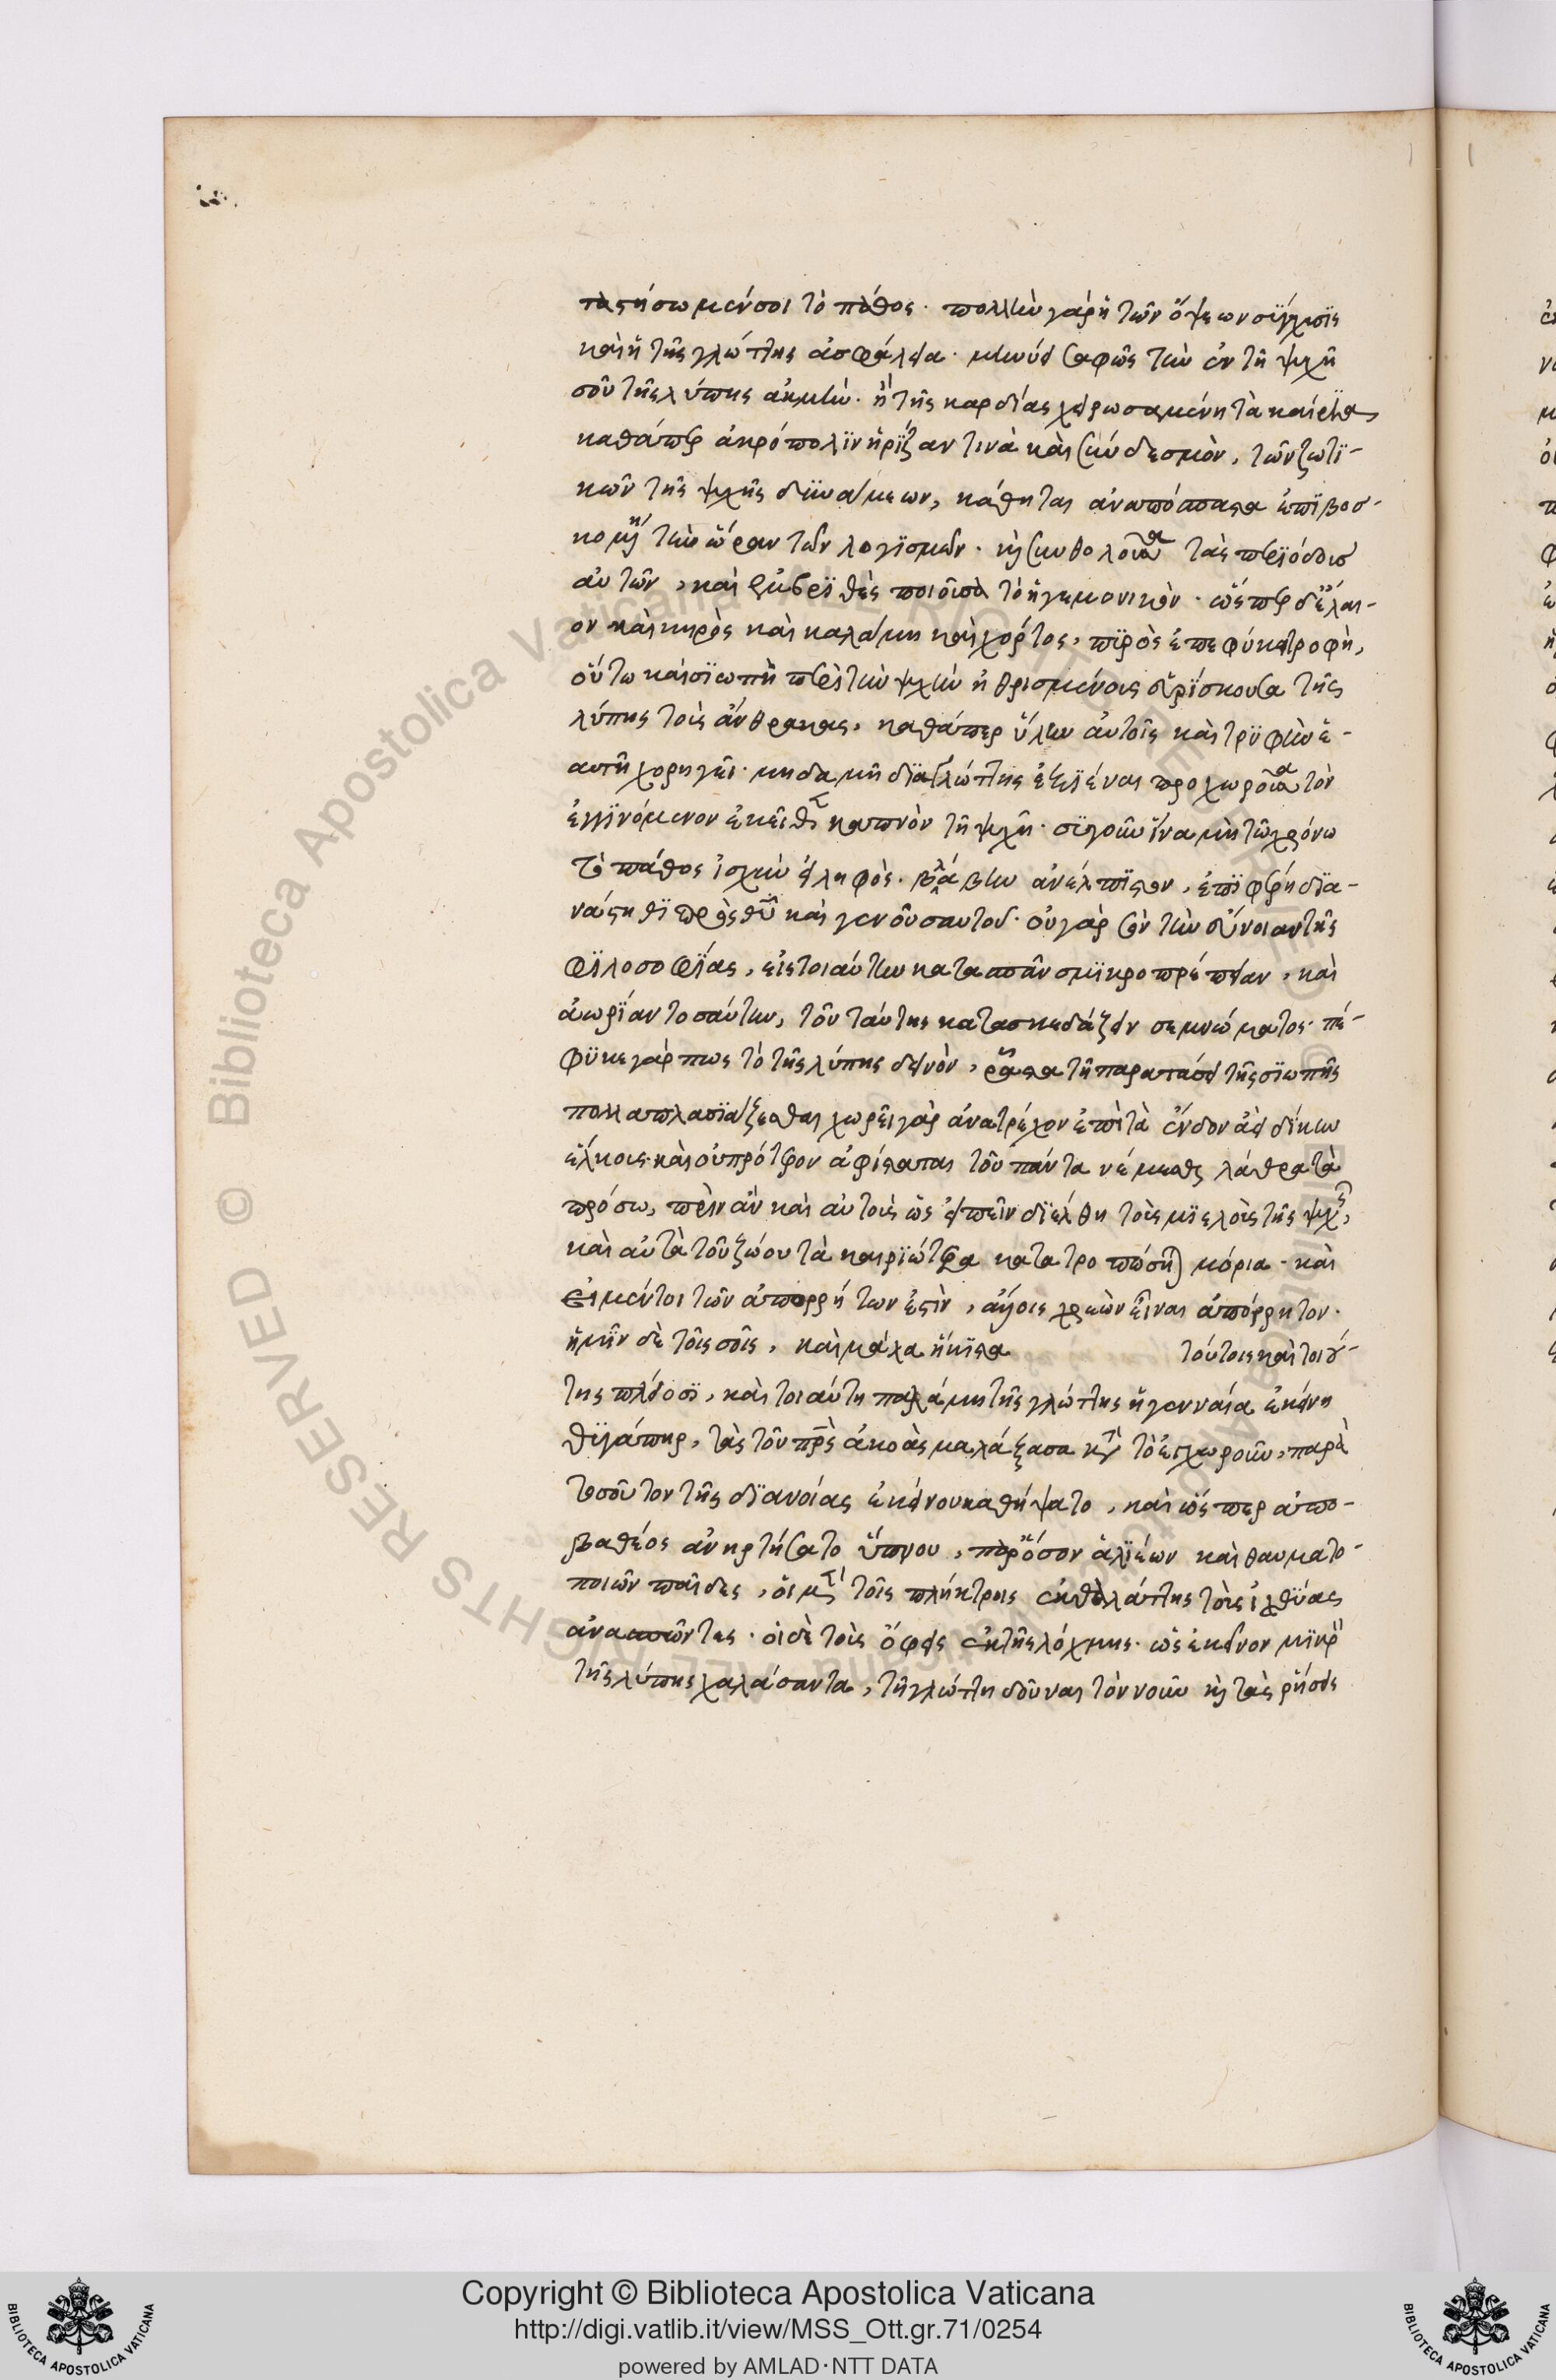 ταστήσωμέν σοι τὸ πάθος· πολλὴν γὰρ ἡ τῶν ὄψεων σύγχυσις
καὶ ἡ τῆς γλώττης ἀσφάλεια· μηνύει σαφῶς τὴν ἐν τῇ ψυχῇ
σοῦ τῆς λύπης ἀκμήν· ἣ τῆς καρδίας χειρωσαμένη τὰ καίρια,
καθάπερ ἀκρόπολιν ἢ ῥίζαν τινὰ καὶ σύνδεσμον, τῶν ζωτι-
κῶν τῆς ψυχῆς δυνάμεων, κάθηται ἐπιβοσ-
κομένη τὴν ὥραν τῶν λογισμῶν· καὶ συνθολοῦσα τὰς περιόδους
αὐτῶν, καὶ ποιοῦσα τὸ ἡγεμονικόν· ὥσπερ δὲ ἔλαι-
ον καὶ κηρὸς καὶ καλάμη καὶ χόρτος, πυρὸς ἐπεφύκει τροφή,
οὕτω καὶ σιωπὴ περὶ τὴν ψυχὴν ἠθροισμένους εὑρίσκουσα τῆς
λύπης τοὺς ἄνθρακας, καθάπερ ὕλην αὐτοῖς καὶ τρυφὴν ἑ-
αυτὴ χορηγεῖ· μηδαμῇ διὰ γλώττης ἐξιέναι προχωροῦσα τὸν
ἐγγινόμενον ἐκεῖθεν καπνὸν τῇ ψυχῇ· σιγῶν ἵνα μὴ τῷ χρόνῳ
τὸ πάθος ἰσχὺν εἰληφός· βλάβην ἀνέλπιστον, ἐπιφέρῃ διὰ-
νάστηθι πρὸς θεοῦ καὶ γενοῦ σαυτοῦ· οὐ γὰρ σὸν τὴν εὔνοιαν τῆς
φιλοσοφίας, εἰς τοιαύτην κατασπᾶν σμικροπρέπειαν, καὶ
ἀωρίαν τοσαύτην, τοῦ ταύτης κατασκεδάζειν σεμνώματος· πέ-
φυκε γάρ πως τὸ τῆς λύπης δεινόν, ῥᾷστα τῇ παρατάσει τῆς σιωπῆς
πολλαπλασιάζεσθαι χωρεῖ γὰρ ἀνατρέχον ἐπὶ τὰ ἔνδον ἀεὶ δίκην
ἕλκους· καὶ οὐ πρότερον ἀφίσταται τοῦ πάντα νέμεσθαι λάθρα τὰ
πρόσω, πρὶν ἂν καὶ αὐτοὺς ὡς εἰπεῖν διέλθῃ τοὺς μυελοὺς τῆς ψυχῆς,
καὶ αὐτὰ τοῦ ζώου τὰ καιριώτερα κατατροπώσηται μόρια· καὶ
εἰ μέντοι τῶν ἀπορρήτων ἐστίν, ἄλλοις χρεὼν εἶναι ἀπόρρητον·
ἡμῖν δὲ τοῖς σοῖς, καὶ μάλα ἥκιστα τούτοις καὶ τοιού-
τοις πλείοσι, καὶ τοιαύτη παλάμῃ τῆς γλώττης ἡ γενναία ἐκείνη
θυγάτηρ, τὰς τοῦ πατρὸς ἀκοὰς μαλάξασα κατὰ τὸ ἐγχωροῦν, παρὰ
τοσοῦτον τῆς διανοίας ἐκείνου καθήψατο, καὶ ὥσπερ ἀπο-
βαθέος ἀνηρτήσατο ὕπνου, παρόσον ἁλιέων καὶ θαυματο-
ποιῶν παῖδες, οἱ μέντοι τοῖς πλήκτροις ἐκ θαλάττης τοὺς ἰχθύας
ἀνασπῶντες· οἱ δὲ τοὺς ὄφεις ἐκ τῆς λόχμης· ὡς ἐκεῖνον μικρὸν
τῆς λύπης χαλάσαντα, τῇ γλώττῃ δοῦναι τὸν νοῦν καὶ τὰς ῥήσεις
Copyright © Biblioteca Apostolica Vaticana
http://digi.vatlib.it/view/MSS_Ott.gr.71/0254
powered by AMLAD·NTT DATA